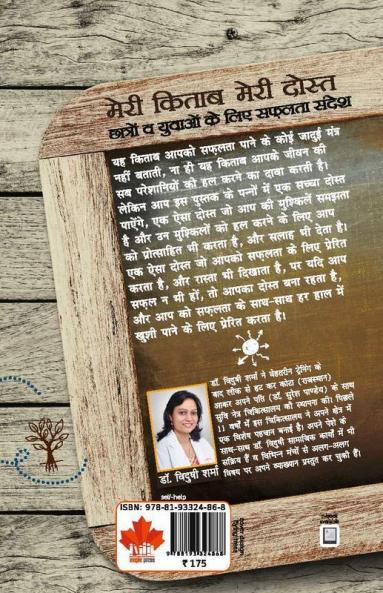 मेरी किताब मेरी दोस्त
छात्रों व युवाओं के लिए सफलता संदेश
यह किताब आपको सफलता पाने के कोई जादुई मंत्र
नहीं बताती, ना ही यह किताब आपके जीवन की
सब परेशानियों को हल करने का दावा करती है।
लेकिन आप इस पुस्तक के पन्नों में एक सच्चा दोस्त
पाएंगे, एक ऐसा दोस्त जो आप की मुश्किलें समझता
है और उन मुश्किलों को हल करने के लिए आप
को प्रोत्साहित भी करता है, और सलाह भी देता है।
एक ऐसा दोस्त जो आपको सफलता के लिए प्रेरित
करता है, और रास्ता भी दिखाता है, पर यदि आप
सफल न भी हों, तो आपका दोस्त बना रहता है,
और आप को सफलता के साथ-साथ हर हाल में
खुशी पाने के लिए प्रेरित करता है।
डॉ. विदुषी शर्मा ने बेहतरीन ट्रेनिंग के
बाद लीक से हट कर कोटा (राजस्थान)
आकर अपने पति (डॉ. सुरेश पाण्डेय) के साथ
सुवि नेत्र चिकित्सालय की स्थापना की। पिछले
11 वर्षों में इस चिकित्सालय ने अपने क्षेत्र में
एक विशेष पहचान बनाई है। अपने पेशे के
साथ-साथ डॉ. विदुषी सामाजिक कार्यों में भी
सक्रिय हैं व विभिन्न मंचों से अलग-अलग
विषय पर अपने व्याख्यान प्रस्तुत कर चुकी हैं।
डॉ. विदुषी शर्मा
self-help
ISBN: 978-81-93324-86-8
9 788193 324868
₹ 175